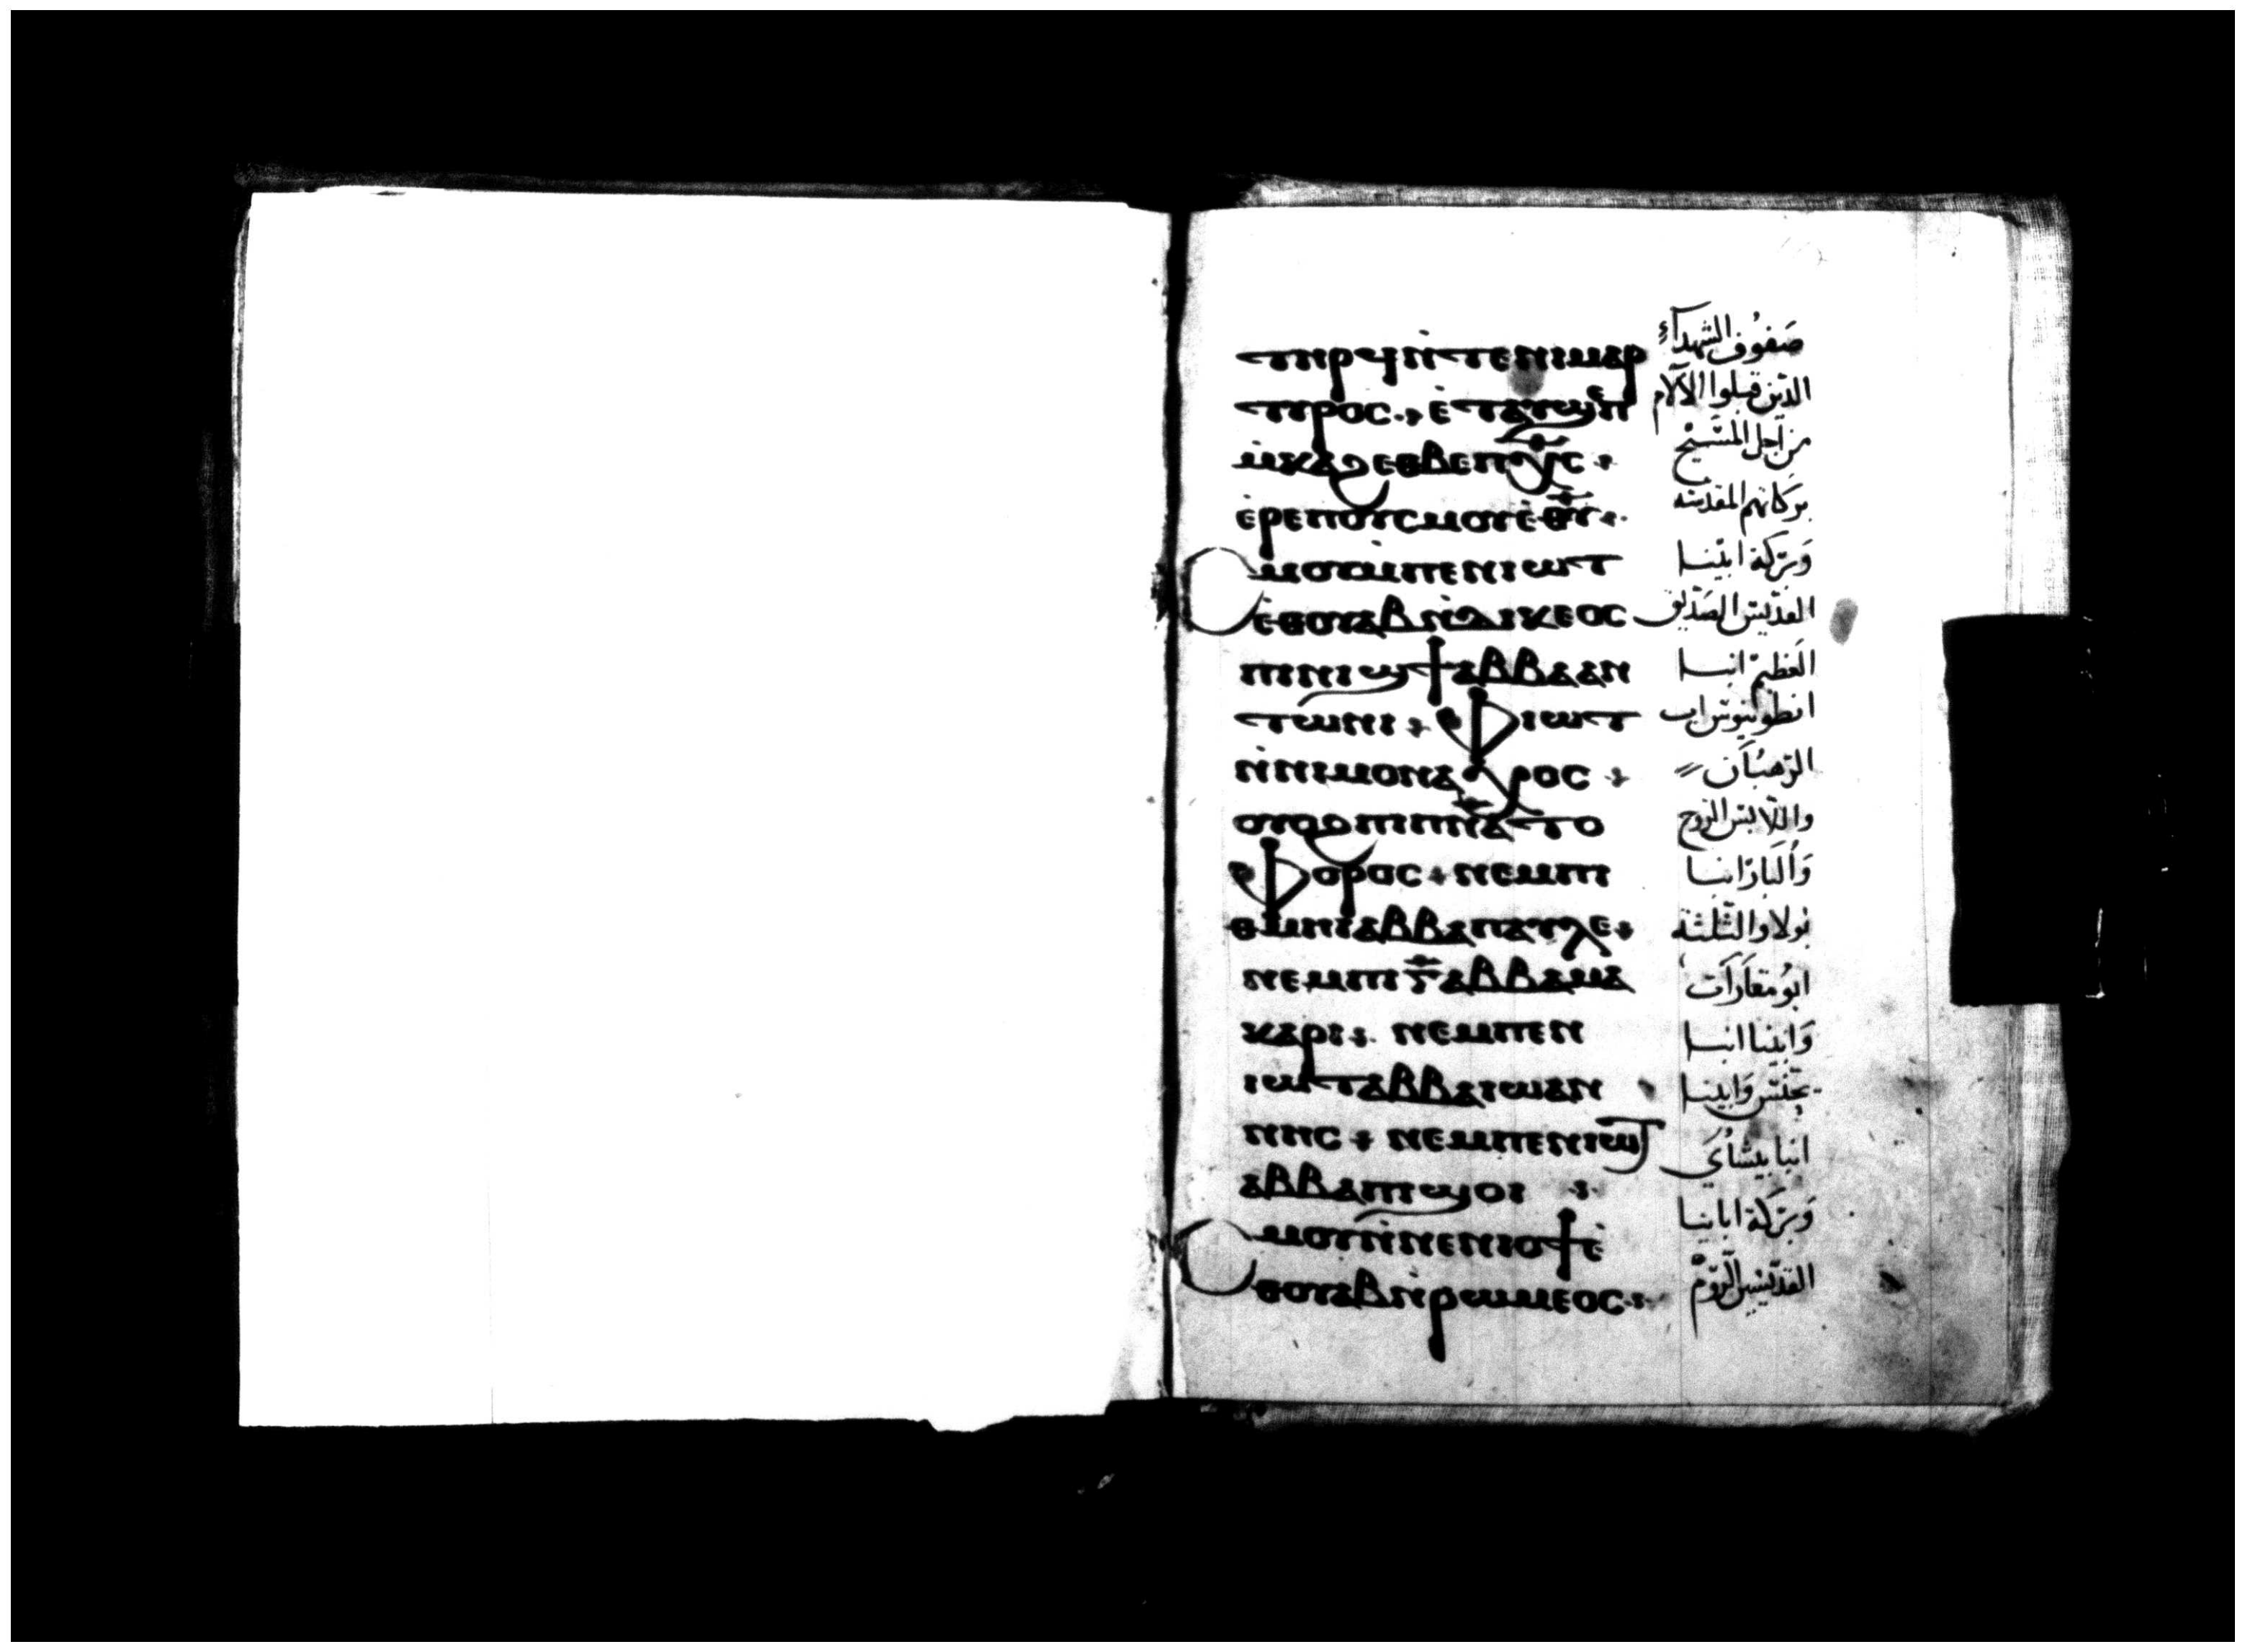 ⲧⲏⲣϥ ⲛ̇ⲧⲉⲛⲓⲙⲁⲣ
ⲧⲩⲣⲟⲥ ⲉ̇ⲧⲁⲩϣⲉⲡ
ⲙⲕⲁϩ ⲉⲑⲃⲉ ⲡⲭ̅ⲥ
ⲉ̇ⲣⲉⲡⲟⲩⲥⲙⲟⲩ ⲉ̇ⲑ̅ⲩ̅
Ⲥⲙⲟⲩ ⲙ̇ⲡⲉⲛⲓⲱⲧ
ⲉ̇ⲑⲟⲩⲁⲃ ⲛ̇ⲇⲓⲕⲉⲟⲥ
ⲡⲓⲛⲓϣϯ ⲁⲃⲃⲁ ⲁⲛ
ⲧⲱⲛⲓ ⲫⲓⲱⲧ
ⲛ̇ⲛⲓⲙⲟⲛⲁⲭⲣⲟⲥ
ⲟⲩⲟϩ ⲡⲓⲡⲛ̅ⲁ̅ⲧⲟ
ⲫⲟⲣⲟⲥ ⲛⲉⲙ ⲡⲓ
ⲑⲙⲏⲓ ⲁⲃⲃⲁ ⲡⲁⲩⲗⲉ
ⲛⲉⲙ ⲡⲓⲅ̅ ⲁⲃⲃⲁ ⲙⲁ
ⲕⲁⲣⲓ ⲛⲉⲙ ⲡⲉⲛ
ⲓⲱⲧ ⲁⲃⲃⲁ ⲓⲱⲁⲛ
ⲛⲏⲥ ⲛⲉⲙ ⲡⲉⲛⲓⲱⲧ
ⲁⲃⲃⲁ ⲡⲓϣⲟⲓ
Ⲥⲙⲟⲩ ⲛ̇ⲛⲉⲛⲓⲟϯ ⲉ̇
ⲑⲟⲩⲁⲃ ⲛ̇ⲣⲱⲙⲉⲟⲥ
صَفوُف الشهدآءِ
الدّين قبلوا الآلآم
من اَجل المسيح
بركاتهم المقدسه
وَبَركة ابينا
القديس الصدّيق
العَظيم انبا
انطونيوس اب
الرّهبَان
واللابس الروح
وَالبَار انبا
بولا والثلثة
ابوُ مقارَات
وَابينا انبا
يحنس وَابينا
انبا بيشاي
وَبَركة ابائنا
القديسين الرّوم